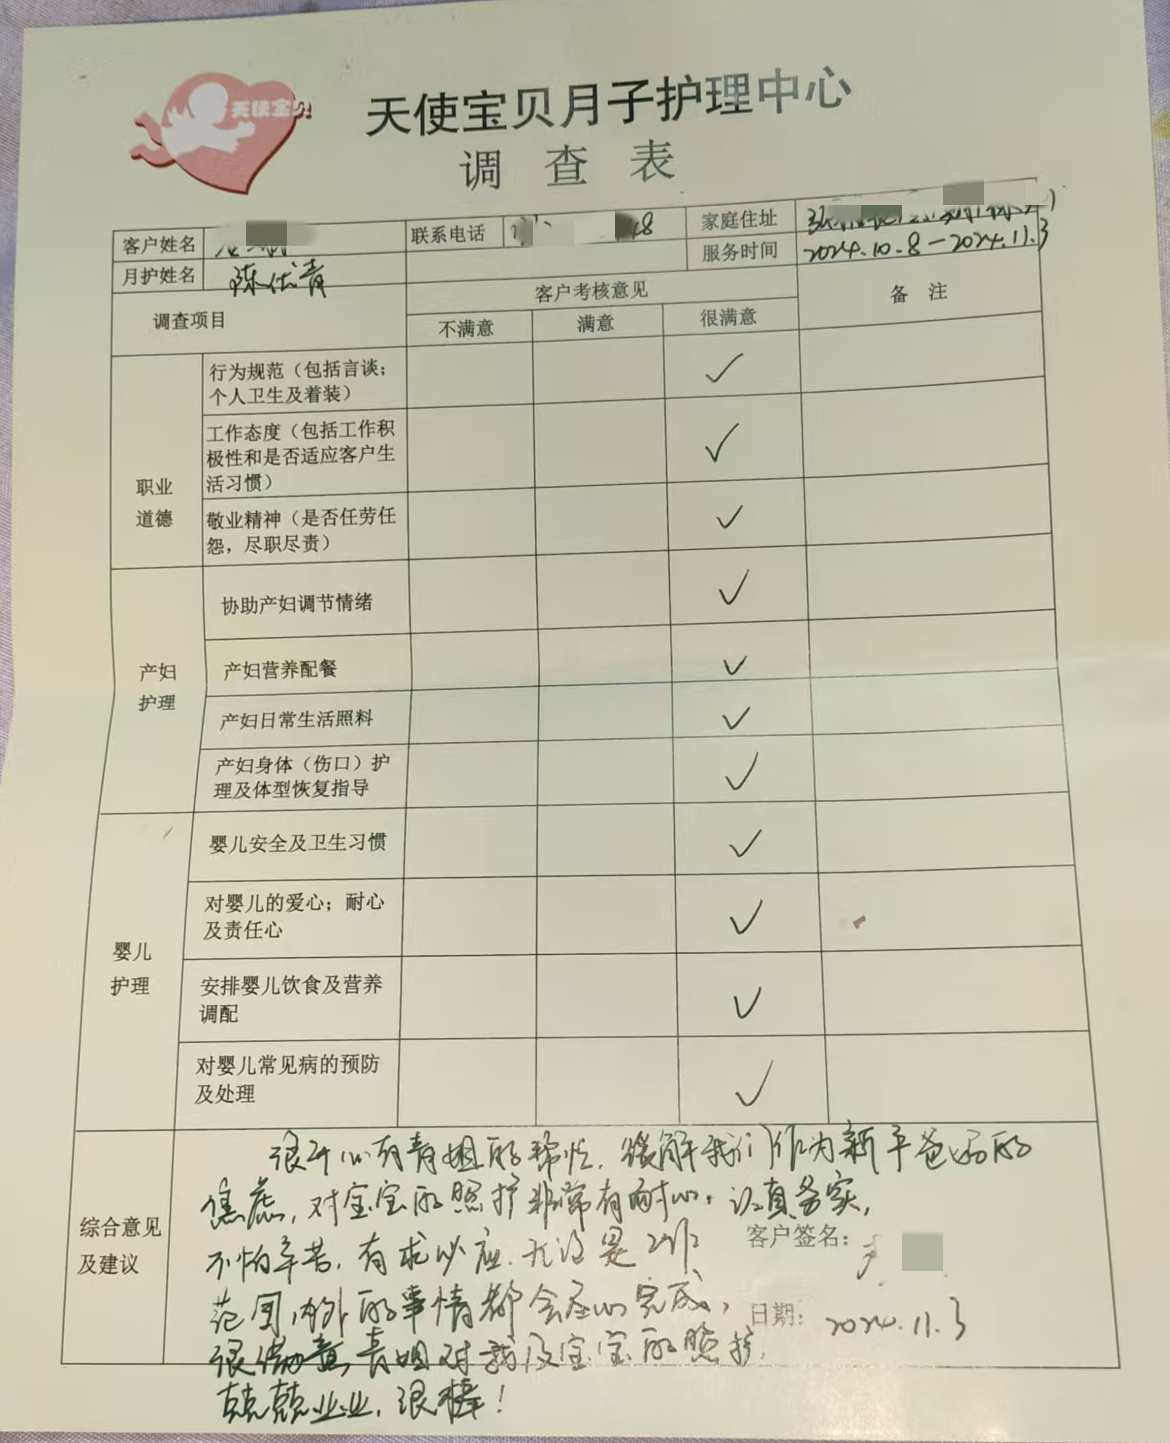 天使宝贝
天使宝贝月子护理中心
调查表
客户姓名 联系电话 48 家庭住址
月护姓名 陈优青 服务时间 2024.10.8-2024.11.3
调查项目 客户考核意见 备注
不满意 满意 很满意
职业道德
行为规范（包括言谈；
个人卫生及着装） ✓
工作态度（包括工作积
极性和是否适应客户生
活习惯） ✓
敬业精神（是否任劳任
怨，尽职尽责） ✓
产妇护理
协助产妇调节情绪 ✓
产妇营养配餐 ✓
产妇日常生活照料 ✓
产妇身体（伤口）护
理及体型恢复指导 ✓
婴儿护理
婴儿安全及卫生习惯 ✓
对婴儿的爱心；耐心
及责任心 ✓
安排婴儿饮食及营养
调配 ✓
对婴儿常见病的预防
及处理 ✓
综合意见
及建议
很开心有青姐的帮忙，缓解我们作为新手爸妈的
焦虑，对宝宝的照护非常有耐心，认真务实，
不怕辛苦，有求必应，无论是工作
范围内外的事情都会尽心完成，
很感谢青姐对我及宝宝的照护，
兢兢业业，很棒！
客户签名：
日期：2024.11.3